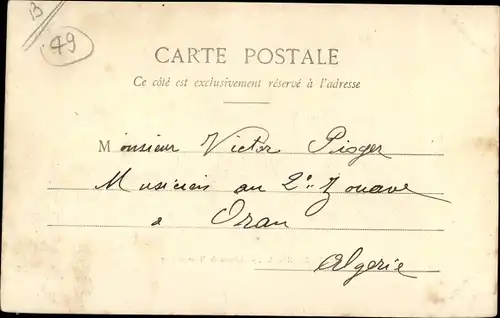 B
49
CARTE POSTALE
Ce côté est exclusivement réservé à l'adresse
Monsieur Victor Pisger
Musicien au 2e Zouave
a Oran
Algerie